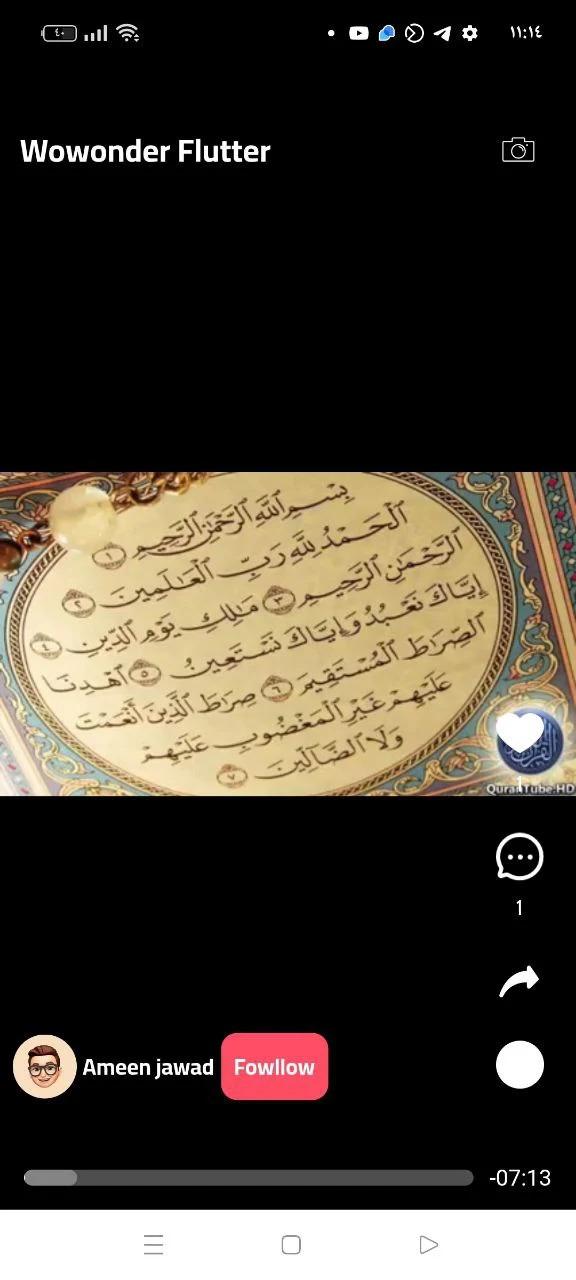 ٤٠
١١:١٤
Wowonder Flutter
بِسْمِ ٱللَّهِ ٱلرَّحْمَٰنِ ٱلرَّحِيمِ ١
ٱلْحَمْدُ لِلَّهِ رَبِّ ٱلْعَٰلَمِينَ ٢
ٱلرَّحْمَٰنِ ٱلرَّحِيمِ ٣ مَٰلِكِ يَوْمِ ٱلدِّينِ ٤
إِيَّاكَ نَعْبُدُ وَإِيَّاكَ نَسْتَعِينُ ٥ ٱهْدِنَا
ٱلصِّرَٰطَ ٱلْمُسْتَقِيمَ ٦ صِرَٰطَ ٱلَّذِينَ أَنْعَمْتَ
عَلَيْهِمْ غَيْرِ ٱلْمَغْضُوبِ عَلَيْهِمْ
وَلَا ٱلضَّآلِّينَ ٧
1
QuranTube.HD
1
Ameen jawad
Fowllow
-07:13